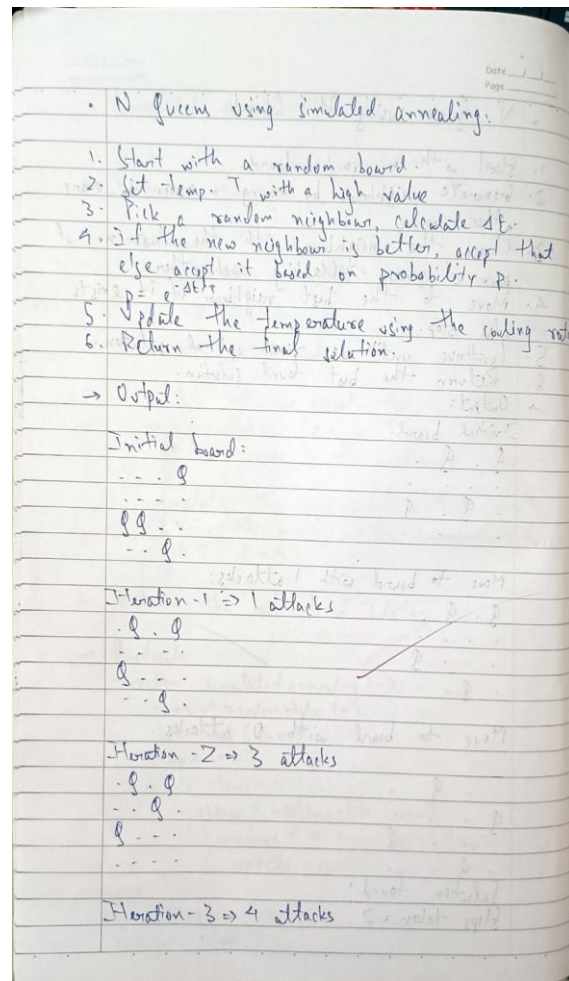 Date
Page
• N Queens using simulated annealing:
1. Start with a random board.
2. Set temp. T with a high value
3. Pick a random neighbour, calculate ΔE.
4. If the new neighbour is better, accept that
else accept it based on probability p.
p = e^-ΔE/T
5. Update the temperature using the cooling rate
6. Return the final solution.
→ Output:
Initial board:
- - - Q
- - - -
Q Q - -
- - Q -
Iteration - 1 => 1 attacks
- Q - Q
- - - -
Q - - -
- - Q
Iteration - 2 => 3 attacks
- Q - Q
- - Q -
Q - - -
- - - -
Iteration - 3 => 4 attacks